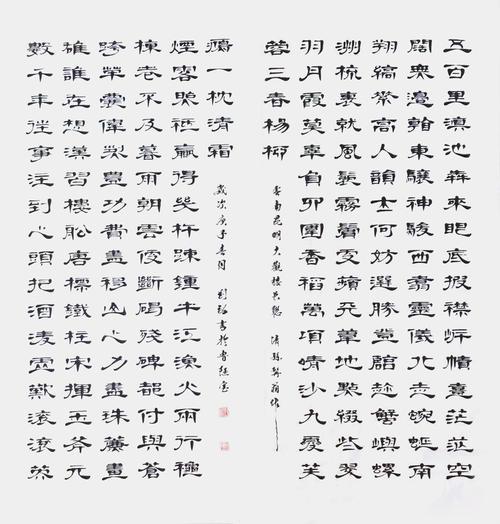 五百里滇池奔來眼底披襟岸幘喜茫茫空
闊無邊看東驤神駿西翥靈儀北走蜿蜒南
翔縞素高人韻士何妨選勝登臨趁蟹嶼螺
洲梳裹就風鬟霧鬢更蘋天葦地點綴些翠
羽丹霞莫辜負四圍香稻萬頃晴沙九夏芙
蓉三春楊柳
雲南昆明大觀樓長聯 清孫髯翁作
數千年往事注到心頭把酒凌虛歎滾滾英
雄誰在想漢習樓船唐標鐵柱宋揮玉斧元
跨革囊偉烈豐功費盡移山心力盡珠簾畫
棟卷不及暮雨朝雲便斷碣殘碑都付與蒼
煙落照祗贏得幾杵疏鐘半江漁火兩行穐
鴈一枕清霜
歲次庚子春月 劉 書於香